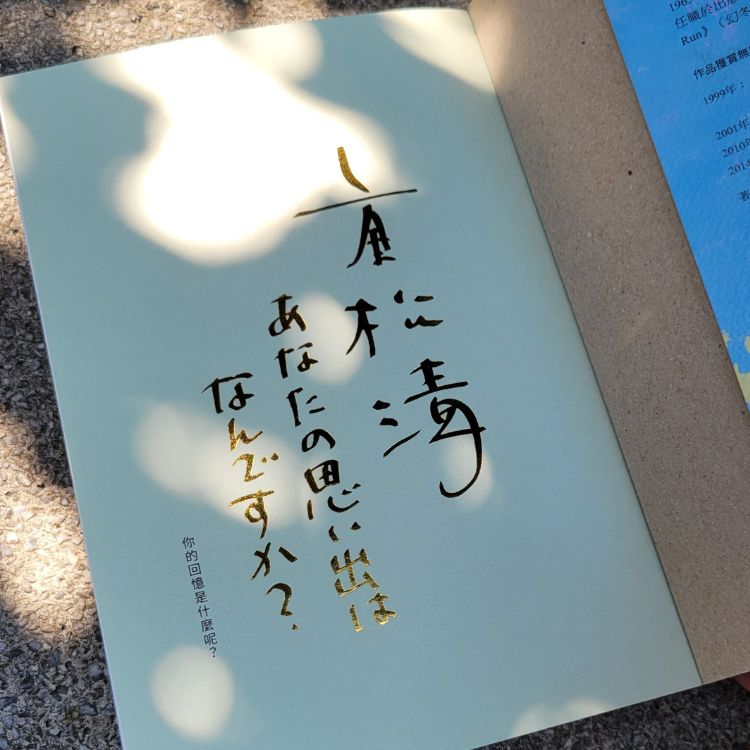 重松清
あなたの思い出は
なんですか?
你的回憶是什麼呢?
任職於出版
Run》(幻冬
作品獲賞無
1999年:
2001年
2010年
2014
著